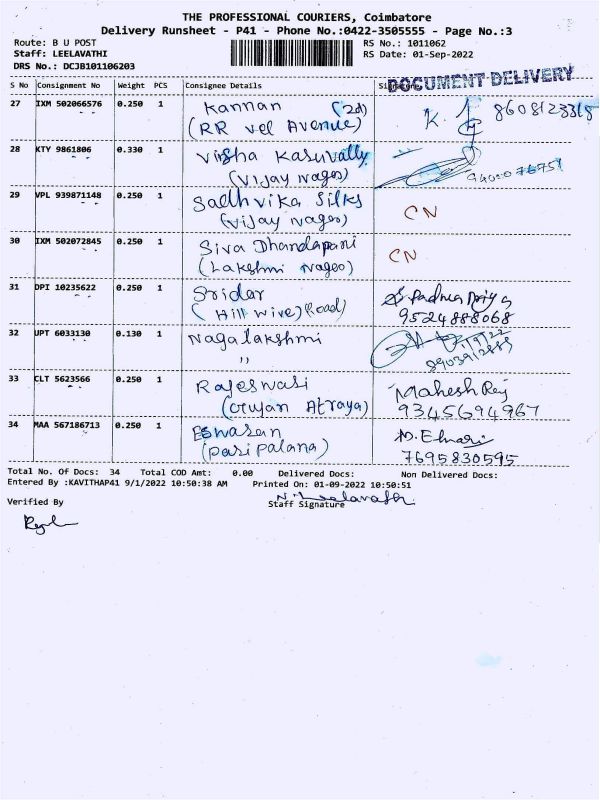 THE PROFESSIONAL COURIERS, Coimbatore
Delivery Runsheet - P41 - Phone No.:0422-3505555 - Page No.:3
Route: B U POST RS No.: 1011062
Staff: LEELAVATHI RS Date: 01-Sep-2022
DRS No.: DCJB101106203
DOCUMENT DELIVERY
S No Consignment No Weight PCS Consignee Details
27 IXM 502066576 0.250 1 Kannan (2d) K.
(RR vel Avenue) 8608123318
28 KTY 9861806 0.330 1 Virsha Kasuvally
(Vijay nager)
29 VPL 939871148 0.250 1 Sadhvika Silks CN
(Vijay nager)
30 IXM 502072845 0.250 1 Siva Dhandapani CN
(Lakshmi nager)
31 DPI 10235622 0.250 1 Sridar S. Padma Priya
(Hill wive) Road) 9524888068
32 UPT 6033130 0.130 1 Nagalakshmi
"
33 CLT 5623566 0.250 1 Rajeswari Mahesh Raj
(Gujan Atraya) 9345694967
34 MAA 567186713 0.250 1 Eswaran
(pari palana) 7695830595
Total No. Of Docs: 34 Total COD Amt: 0.00 Delivered Docs: Non Delivered Docs:
Entered By :KAVITHAP41 9/1/2022 10:50:38 AM Printed On: 01-09-2022 10:50:51
Verified By Staff Signature